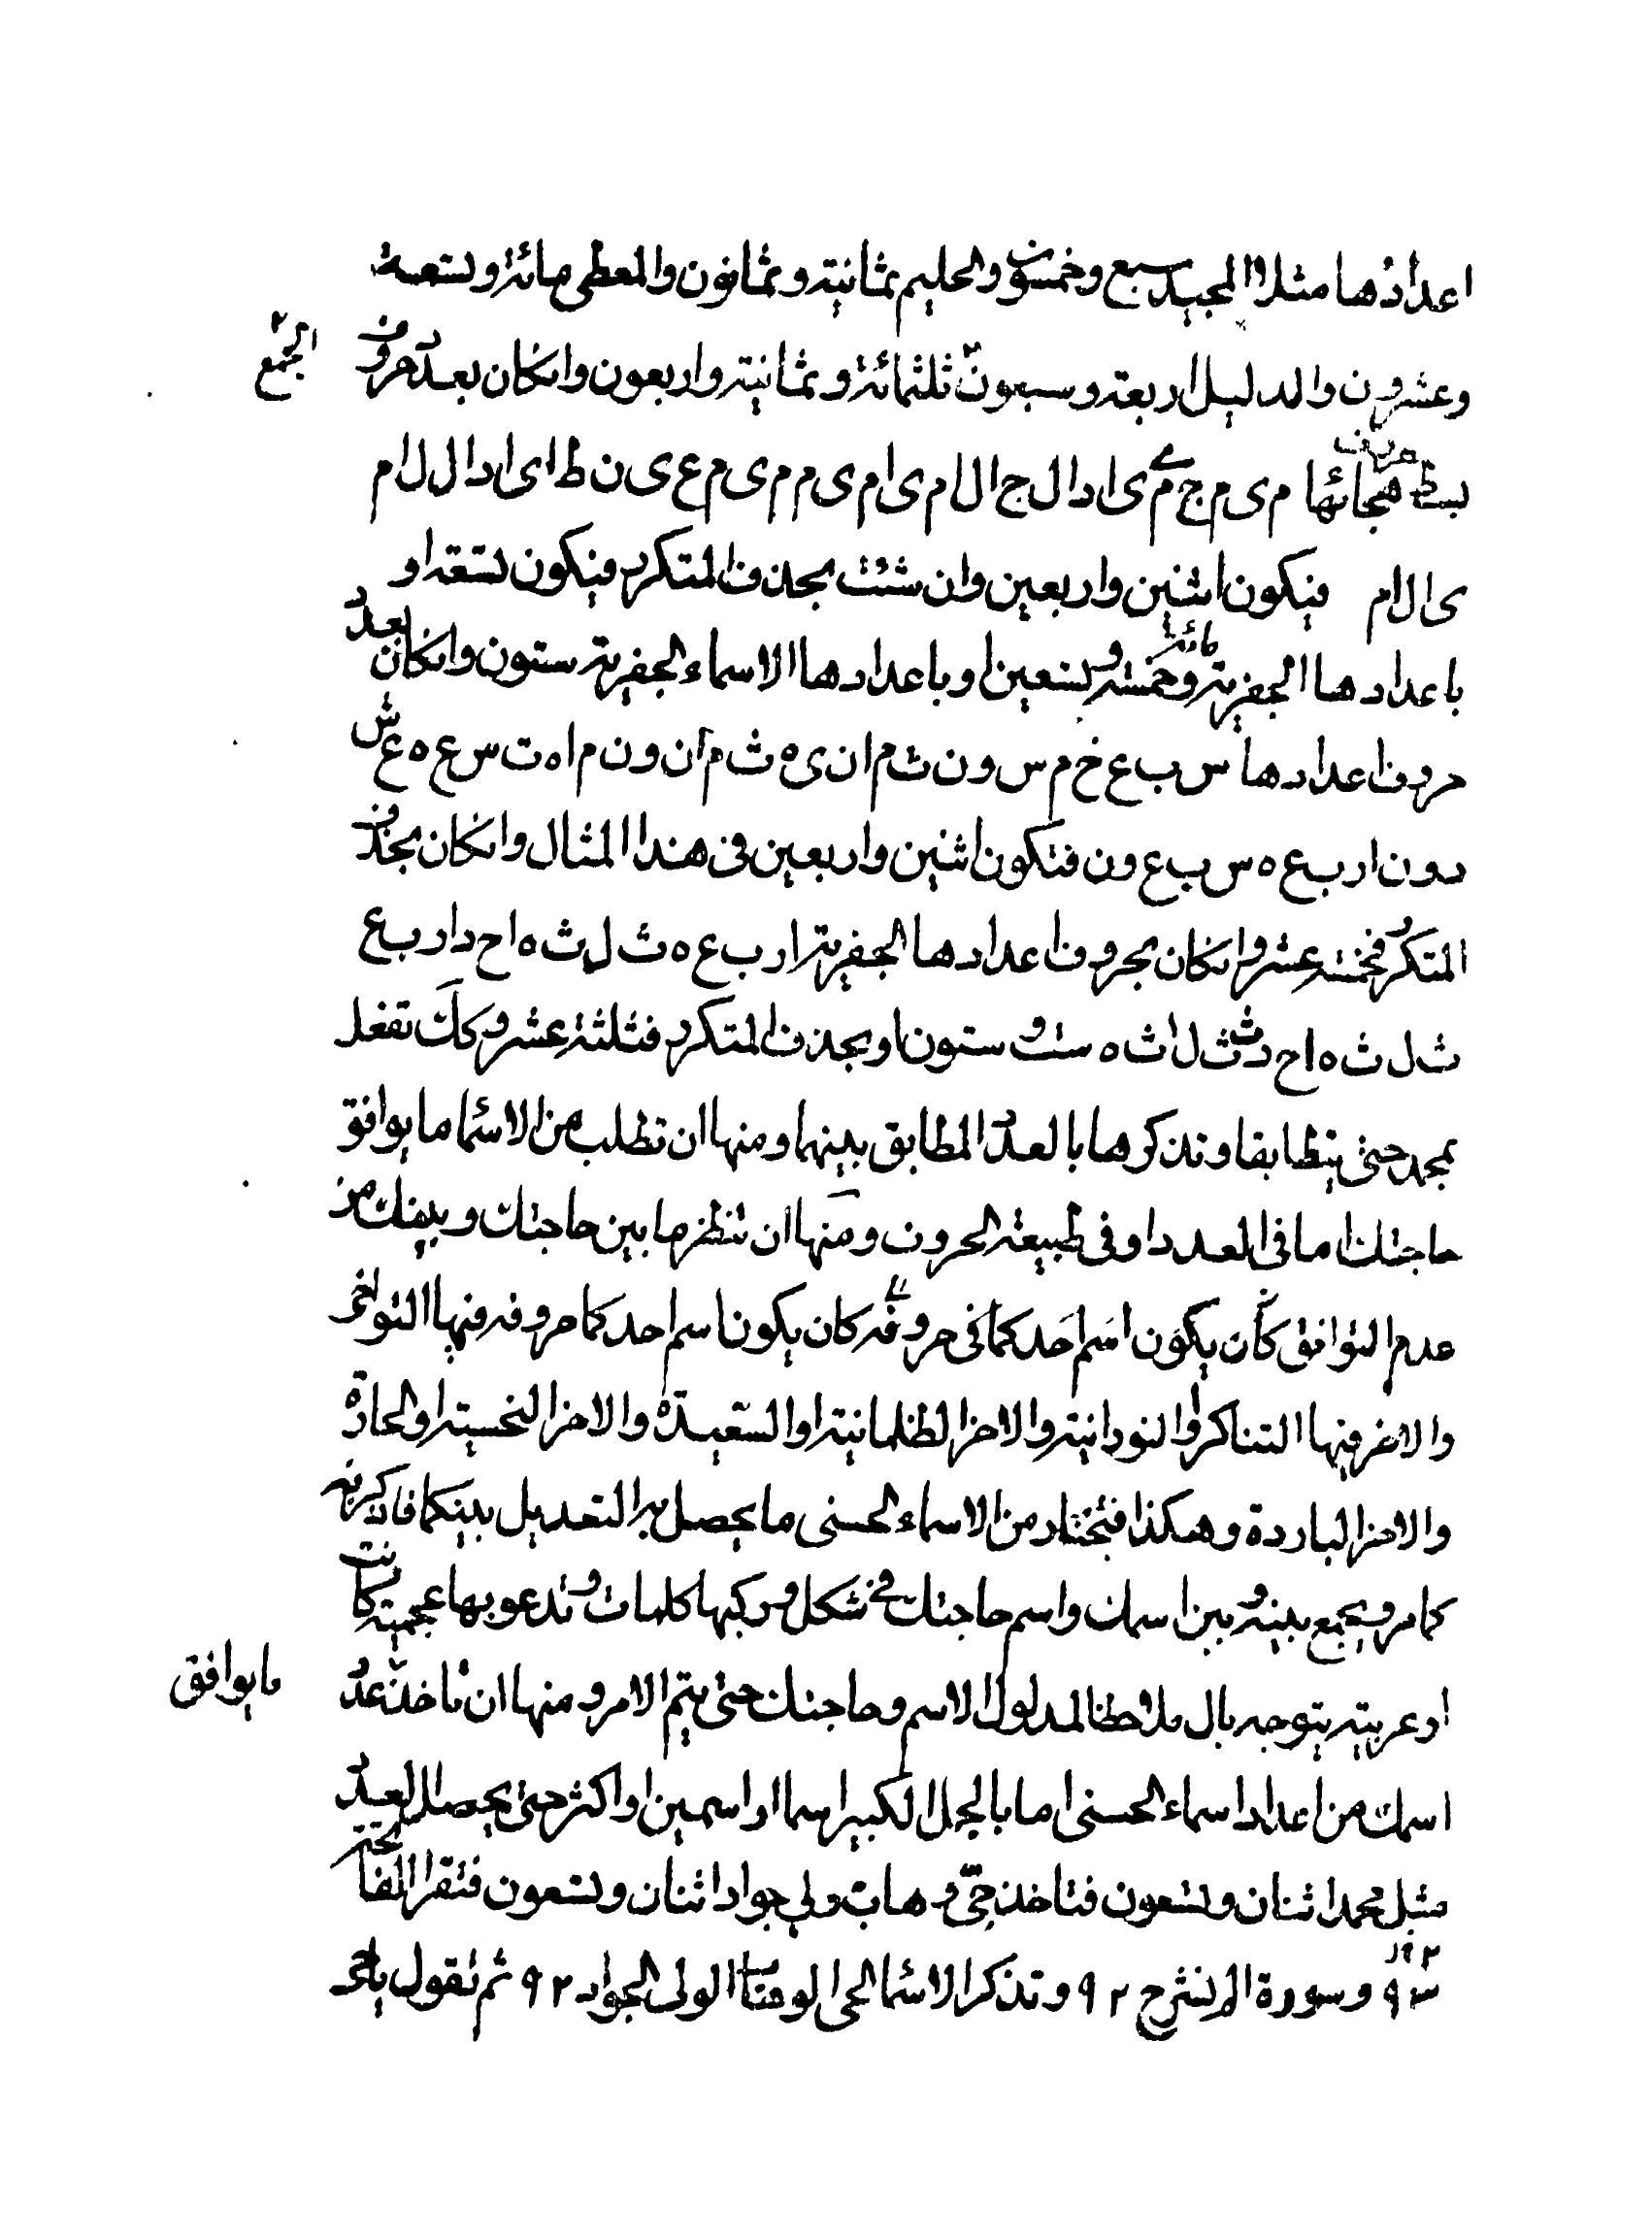 اعدادها مثلا المجيد سبع وخمسون والحليم ثمانية وثمانون والمعطي مائة وتسعة
وعشرون والدليل اربعة وسبعون ثلثمائة وثمانية واربعون وانكان بعدد حروف
الجمع
بسط حروف هجائها م ی م ج م ی ا د ا ل ح ا ل ا م ی ا م ی م م ی م ع ی ن ط ا ی ا د ا ل ل ا م
ی ا ل ا م فيكون اثنين واربعين وان شئت بحذف المتكرر فيكون تسعة او
باعدادها الجفرية مائة وخمسة وتسعين او باعدادها الاسماء الجفرية ستون وانكان بعدد
حروف اعدادها س ب ع خ م س و ن ث م ا ن ی ه ث م ا ن و ن م ا ه ت س ع ه ع ش
ر و ن ا ر ب ع ه س ب ع و ن فتكون اثنين واربعين فى هذا المثال وانكان بحذف
المتكرر فخمسة عشر وانكان بحروف اعدادها الجفرية ا ر ب ع ه ث ل ث ه ا ح د ا ر ب ع
ث ل ث ه ا ح د ث ل ا ث ه ست و ستون او بحذف المتكرر فثلثة عشر وكك تفعل
بمحمد حتى يتطابقا وتذكرها بالعدد المطابق بينهما ومنها ان تطلب من الاسما ما يوافق
حاجتك اما فى العدد او فى طبيعة الحروف ومنها ان تنظر ما بين حاجتك وبينك من
عدم التوافق كأن يكون اسم احدكما فى حروفه كان يكون اسم احدكما حروفه فيها التواخى
والاخر فيها التناكر او النورانية والاخر الظلمانية او السعيدة والاخر النحسية او الحادة
والاخر الباردة وهكذا فتختار من الاسماء الحسنى ما يحصل به التعديل بينكما فاذكر به
كما مر ويجمع بينه وبين اسمك واسم حاجتك فى شكل وتركبها كلمات وتدعو بها عجمية كانت
او عربية بتوجه بال ملاحظا لمدلول الاسم وحاجتك حتى يتم الامر ومنها ان تاخذ عدد
ما يوافق
اسمك من اعداد اسماء الحسنى اما بالجمل الكبير اسما او اسمين او اكثر حتى يحصل العدد
مثل محمد اثنان وتسعون فتاخذ حي وهاب ولي جواد اثنان وتسعون فتقرا الفاتحة
٩٢ وسورة الم نشرح ٩٢ وتذكر الاسما الحى الوهاب الولى الجواد ٩٢ ثم تقول يا حى